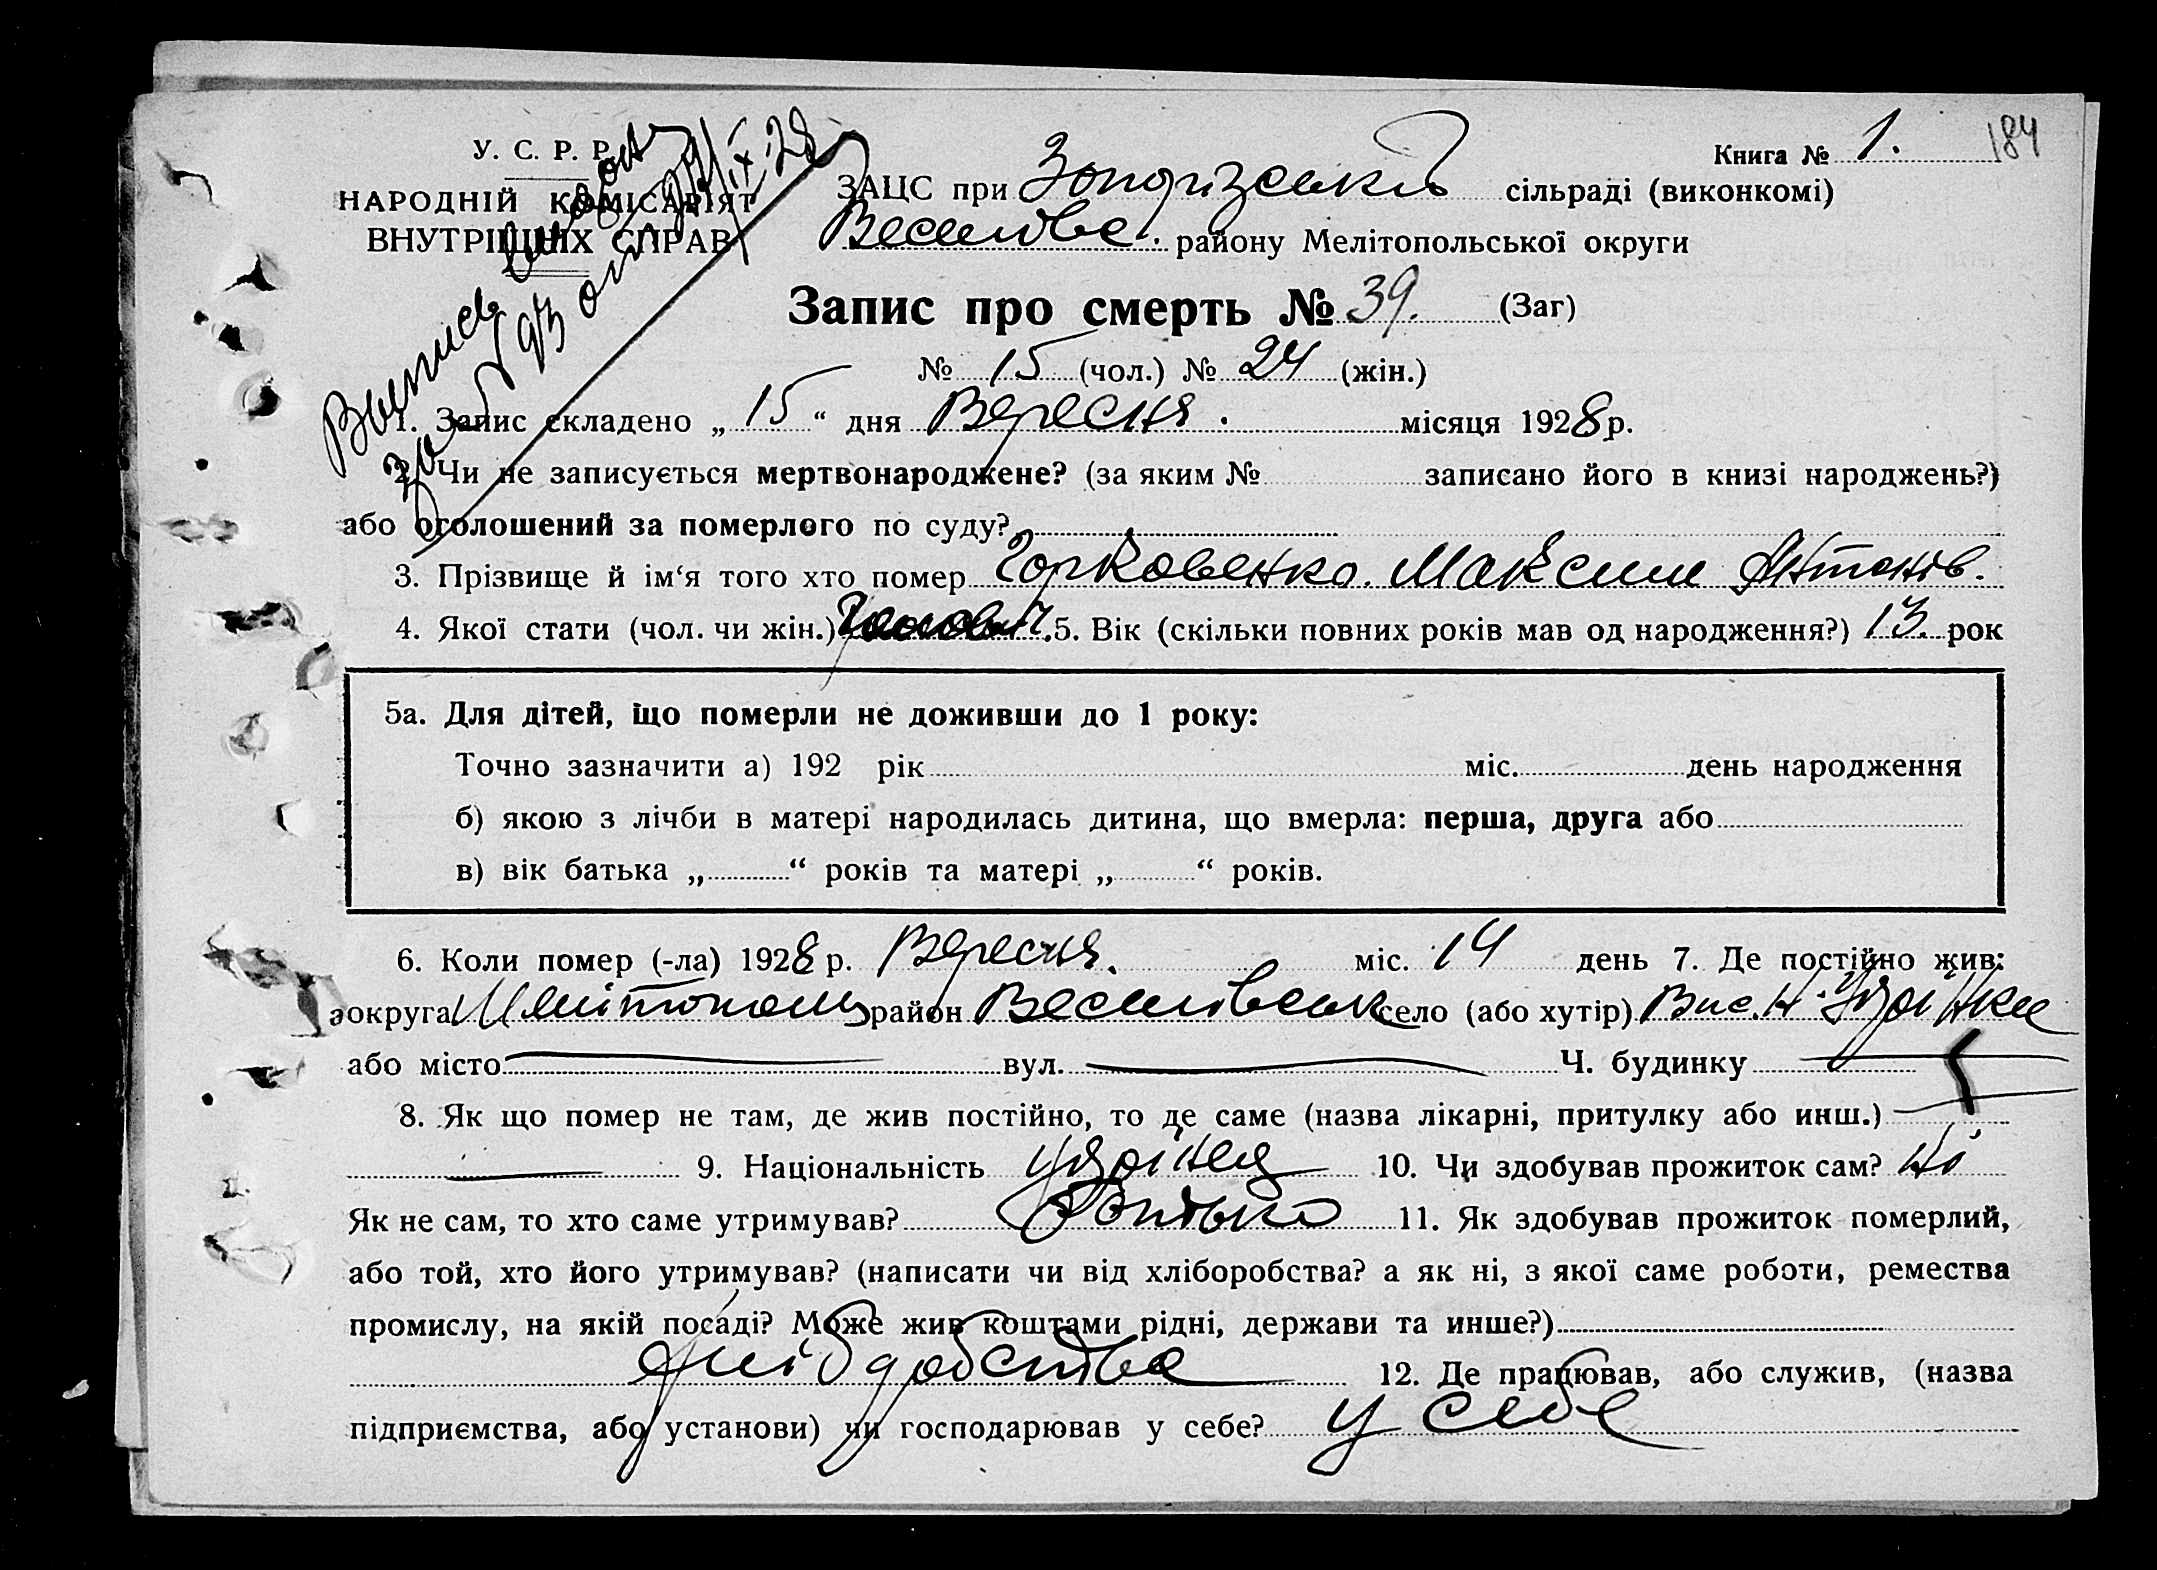 Книга № 1. 184
У. С. Р. Р.
НАРОДНІЙ КОМІСАРІЯТ
ВНУТРІШНІХ СПРАВ
ЗАЦС при сільраді (виконкомі)
району Мелітопольської округи
Выпись выдана
за № 93 от 29/IX-28
Запис про смерть № 39. (Заг)
№ 15 (чол.) № 24 (жін.)
1. Запис складено „ 15 “ дня Вересня місяця 1928 р.
2. Чи не записується мертвонароджене? (за яким № записано його в книзі народжень?)
або оголошений за померлого по суду?
3. Прізвище й ім‘я того хто помер Горковенко Максим Антонів.
4. Якої стати (чол. чи жін.) 5. Вік (скільки повних років мав од народження?) 13 рок
5а. Для дітей, що померли не доживши до 1 року:
Точно зазначити а) 192 рік міс. день народження
б) якою з лічби в матері народилась дитина, що вмерла: перша, друга або
в) вік батька „ “ років та матері „ “ років.
6. Коли помер (-ла) 1928 р. Вересня. міс. 14 день 7. Де постійно жив:
округа Мелітополь район Веселовськ село (або хутір) Вис. Н-Українка
або місто вул. Ч. будинку
8. Як що помер не там, де жив постійно, то де саме (назва лікарні, притулку або инш.)
9. Національність українец 10. Чи здобував прожиток сам? Ні
Як не сам, то хто саме утримував? Батько 11. Як здобував прожиток померлий,
або той, хто його утримував? (написати чи від хліборобства? а як ні, з якої саме роботи, ремества
промислу, на якій посаді? Може жив коштами рідні, держави та инше?)
12. Де працював, або служив, (назва
підприємства, або установи) чи господарював у себе? у себе